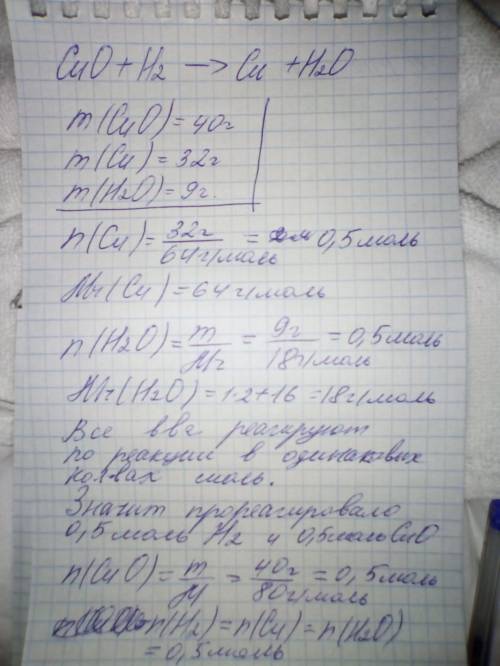 CuO + H2 → Cu + H2O
m(CuO) = 40г
m(Cu) = 32г
m(H2O) = 9г.
n(Cu) = 32г / 64г/моль = 0,5моль
Mr(Cu) = 64г/моль
n(H2O) = m / Mr = 9г / 18г/моль = 0,5моль
Mr(H2O) = 1·2+16 = 18г/моль
Все вва реагируют
по реакции в одинаковых
колвах моль.
Значит прореагировало
0,5моль H2 и 0,5моль CuO
n(CuO) = m / M = 40г / 80г/моль = 0,5моль
n(H2) = n(Cu) = n(H2O)
= 0,5моль